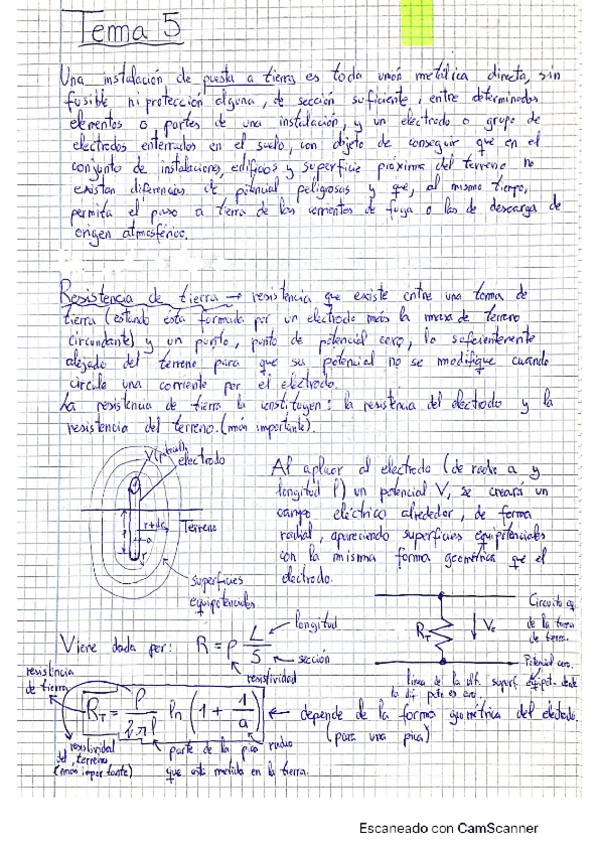 Tema 5
Una instalación de puesta a tierra es toda unión metálica directa, sin
fusible ni protección alguna, de sección suficiente, entre determinados
elementos o partes de una instalación, y un electrodo o grupo de
electrodos enterrados en el suelo, con objeto de conseguir que en el
conjunto de instalaciones, edificios y superficie próxima del terreno no
existan diferencias de potencial peligrosas y que, al mismo tiempo,
permita el paso a tierra de las corrientes de fuga o las de descarga de
origen atmosférico.
Resistencia de tierra → resistencia que existe entre una toma de
tierra (estando esta formada por un electrodo más la masa de terreno
circundante) y un punto, punto de potencial cero, lo suficientemente
alejado del terreno para que su potencial no se modifique cuando
circule una corriente por el electrodo.
La resistencia de tierra la constituyen: la resistencia del electrodo y la
resistencia del terreno. (más importante).
electrodo
Terreno
superficies
equipotenciales
Al aplicar al electrodo (de radio a y
longitud l) un potencial V, se creará un
campo eléctrico alrededor, de forma
radial, apareciendo superficies equipotenciales
con la misma forma geométrica que el
electrodo.
Circuito eq.
de la toma
de tierra.
Potencial cero.
Viene dada por: R = ρ L/S
longitud
sección
resistividad
resistencia
de tierra
R_T = ρ/(2πl) ln (1 + 1/a)
depende de la forma geométrica del electrodo.
(para una pica)
resistividad
del terreno
(más importante)
parte de la pica
que está metida en la tierra.
radio
Escaneado con CamScanner